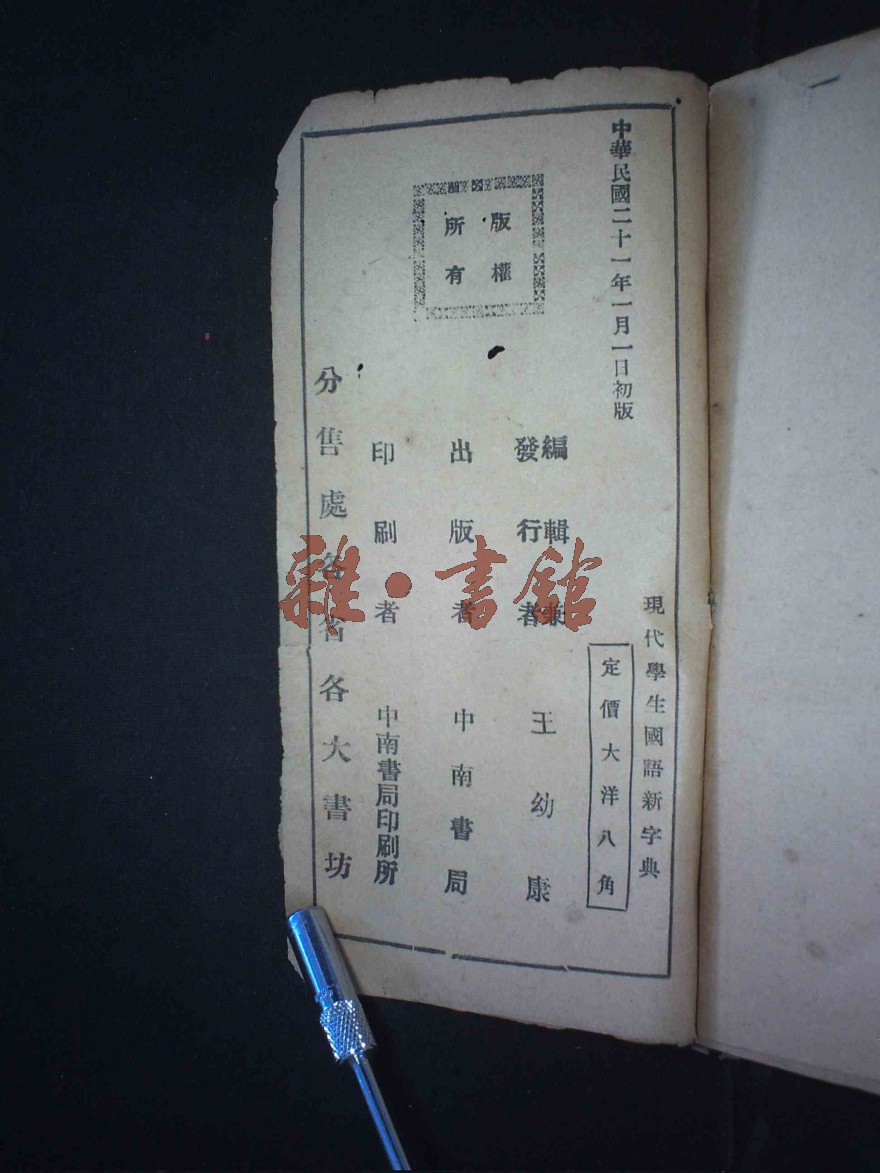 中華民國二十一年一月一日初版
現代學生國語新字典
定價大洋八角
版權
所有
編輯兼
發行者
王幼康
出版者 中南書局
印刷者 中南書局印刷所
分售處各省各大書坊
雜·書館